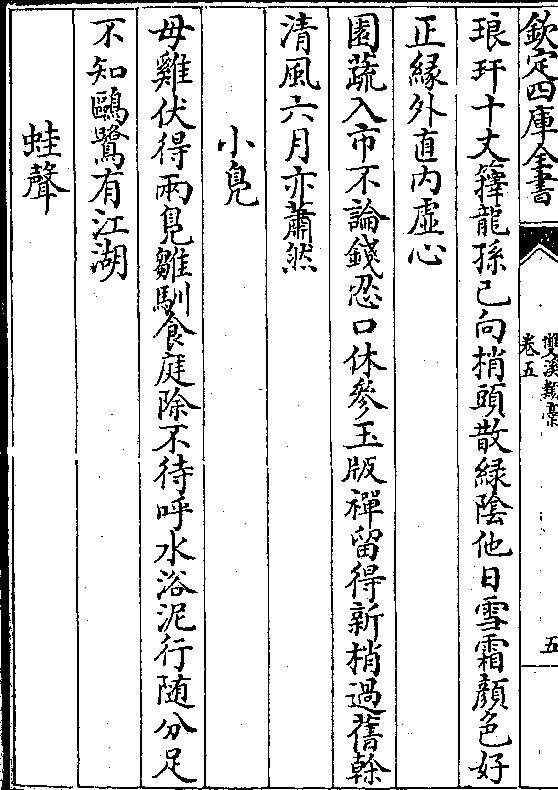 欽定四庫全書
雙溪類稾
卷五
五
琅玕十丈籜龍孫已向梢頭散緑陰他日雪霜顔色好
正縁外直内虚心
園蔬入市不論錢忍口休參玉版禪留得新梢過舊榦
清風六月亦蕭然
小鳬
母雞伏得兩鳬雛馴食庭除不待呼水浴泥行随分足
不知鷗鷺有江湖
蛙聲